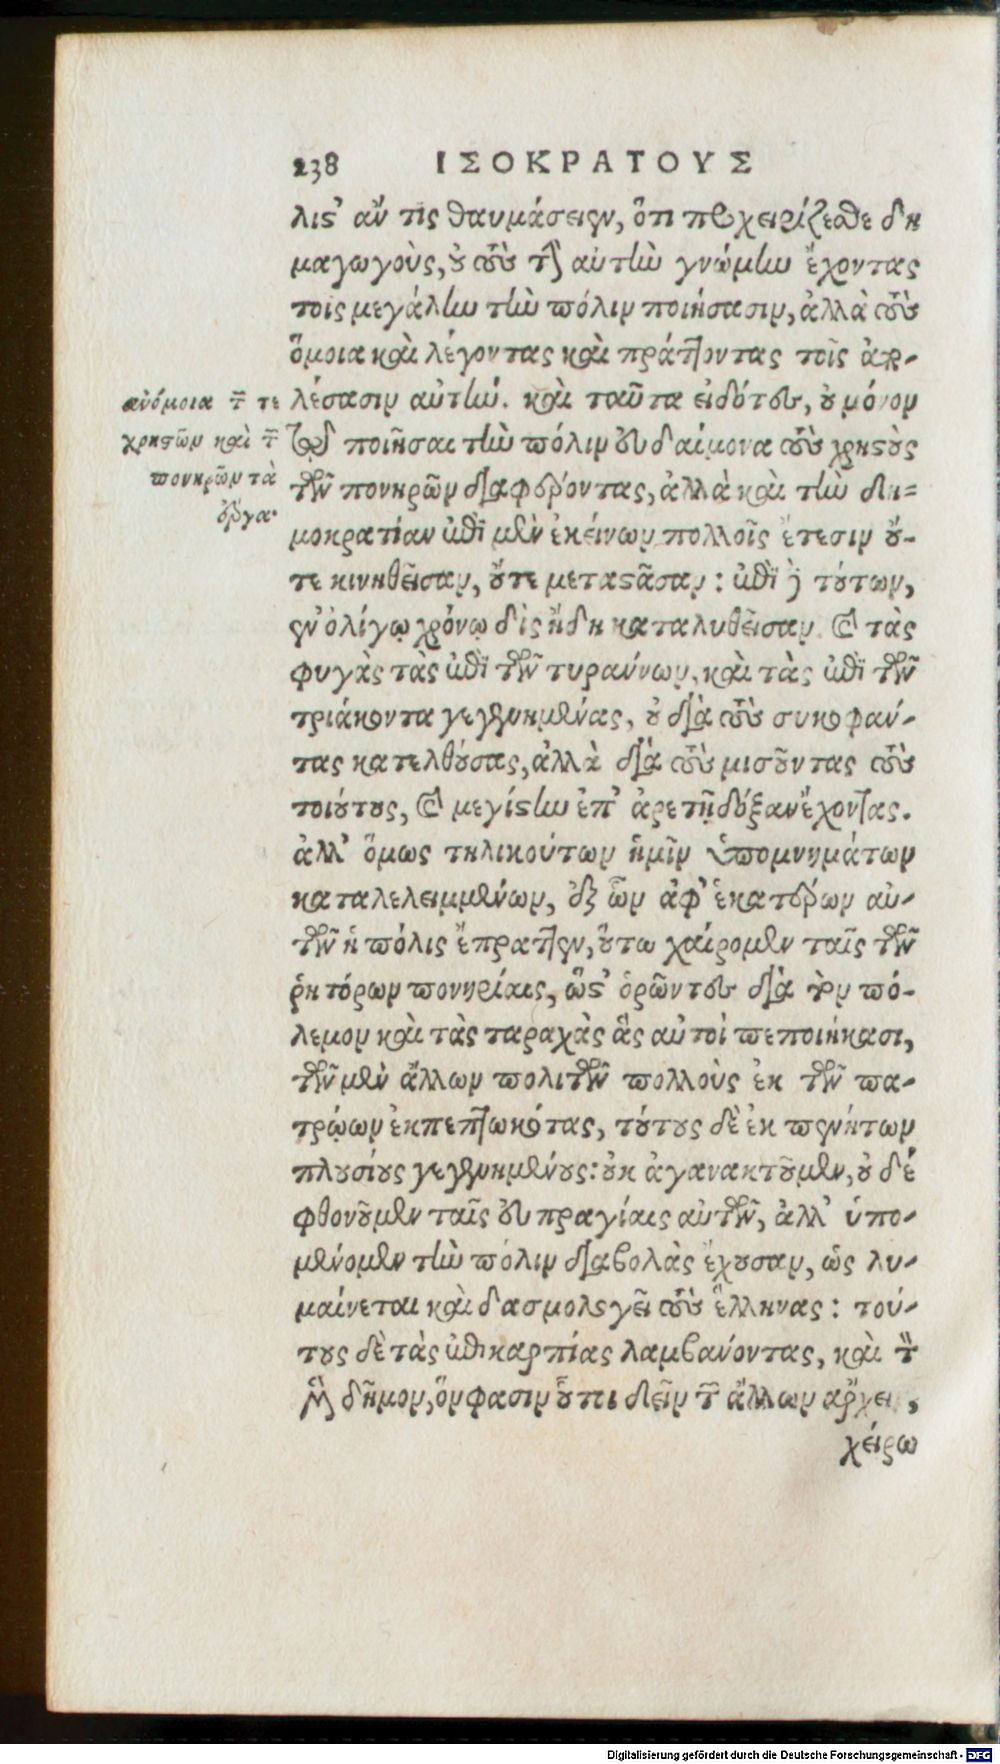 238 ΙΣΟΚΡΑΤΟΥΣ
λιστ' ἄν τις θαυμάσειεν, ὅτι προχειρίζεσθε δη
μαγωγοὺς, οὐ τοὺς τὴν αὐτὴν γνώμην ἔχοντας
τοῖς μεγάλην τὴν πόλιν ποιήσασιν, ἀλλὰ τοὺς
ὅμοια καὶ λέγοντας καὶ πράττοντας τοῖς ἀπο-
λέσασιν αὐτήν. καὶ ταῦτα εἰδότες, οὐ μόνον
ἀνόμοια τῶν τε
χρηστῶν καὶ τῶν
πονηρῶν τὰ
ἔργα.
ποιῆσαι τὴν πόλιν εὐδαίμονα τοὺς χρηστοὺς
τῶν πονηρῶν διαφέροντας, ἀλλὰ καὶ τὴν δη-
μοκρατίαν ἐπὶ μὲν ἐκείνων πολλοῖς ἔτεσιν οὔ-
τε κινηθεῖσαν, οὔτε μεταστᾶσαν: ἐπὶ δὲ τούτων,
ἐν ὀλίγῳ χρόνῳ δὶς ἤδη καταλυθεῖσαν. καὶ τὰς
φυγὰς τὰς ἐπὶ τῶν τυράννων, καὶ τὰς ἐπὶ τῶν
τριάκοντα γεγενημένας, οὐ διὰ τοὺς συκοφάν-
τας κατελθούσας, ἀλλὰ διὰ τοὺς μισοῦντας τοὺς
τοιούτους, καὶ μεγίστην ἐπ' ἀρετῇ δόξαν ἔχοντας.
ἀλλ' ὅμως τηλικούτων ἡμῖν ὑπομνημάτων
καταλελειμμένων, ἐξ ὧν ἀφ' ἑκατέρων αὐ-
τῶν ἡ πόλις ἔπραττεν, οὕτω χαίρομεν ταῖς τῶν
ῥητόρων πονηρίαις, ὥστ' ὁρῶντες διὰ τὸν πό-
λεμον καὶ τὰς ταραχὰς ἃς αὐτοὶ πεποιήκασι,
τῶν μὲν ἄλλων πολιτῶν πολλοὺς ἐκ τῶν πα-
τρῴων ἐκπεπτωκότας, τούτους δὲ ἐκ πενήτων
πλουσίους γεγενημένους: οὐκ ἀγανακτοῦμεν, οὐδὲ
φθονοῦμεν ταῖς εὐπραγίαις αὐτῶν, ἀλλ' ὑπο-
μένομεν τὴν πόλιν διαβολὰς ἔχουσαν, ὡς λυ-
μαίνεται καὶ δασμολογεῖ τοὺς ἕλληνας: τού-
τους δὲ τὰς ἐπικαρπίας λαμβάνοντας, καὶ τὸν
μὲν δῆμον, ὅν φασιν οὗτοι δεῖν τῶν ἄλλων ἄρχειν,
χείρω
Digitalisierung gefördert durch die Deutsche Forschungsgemeinschaft - DFG